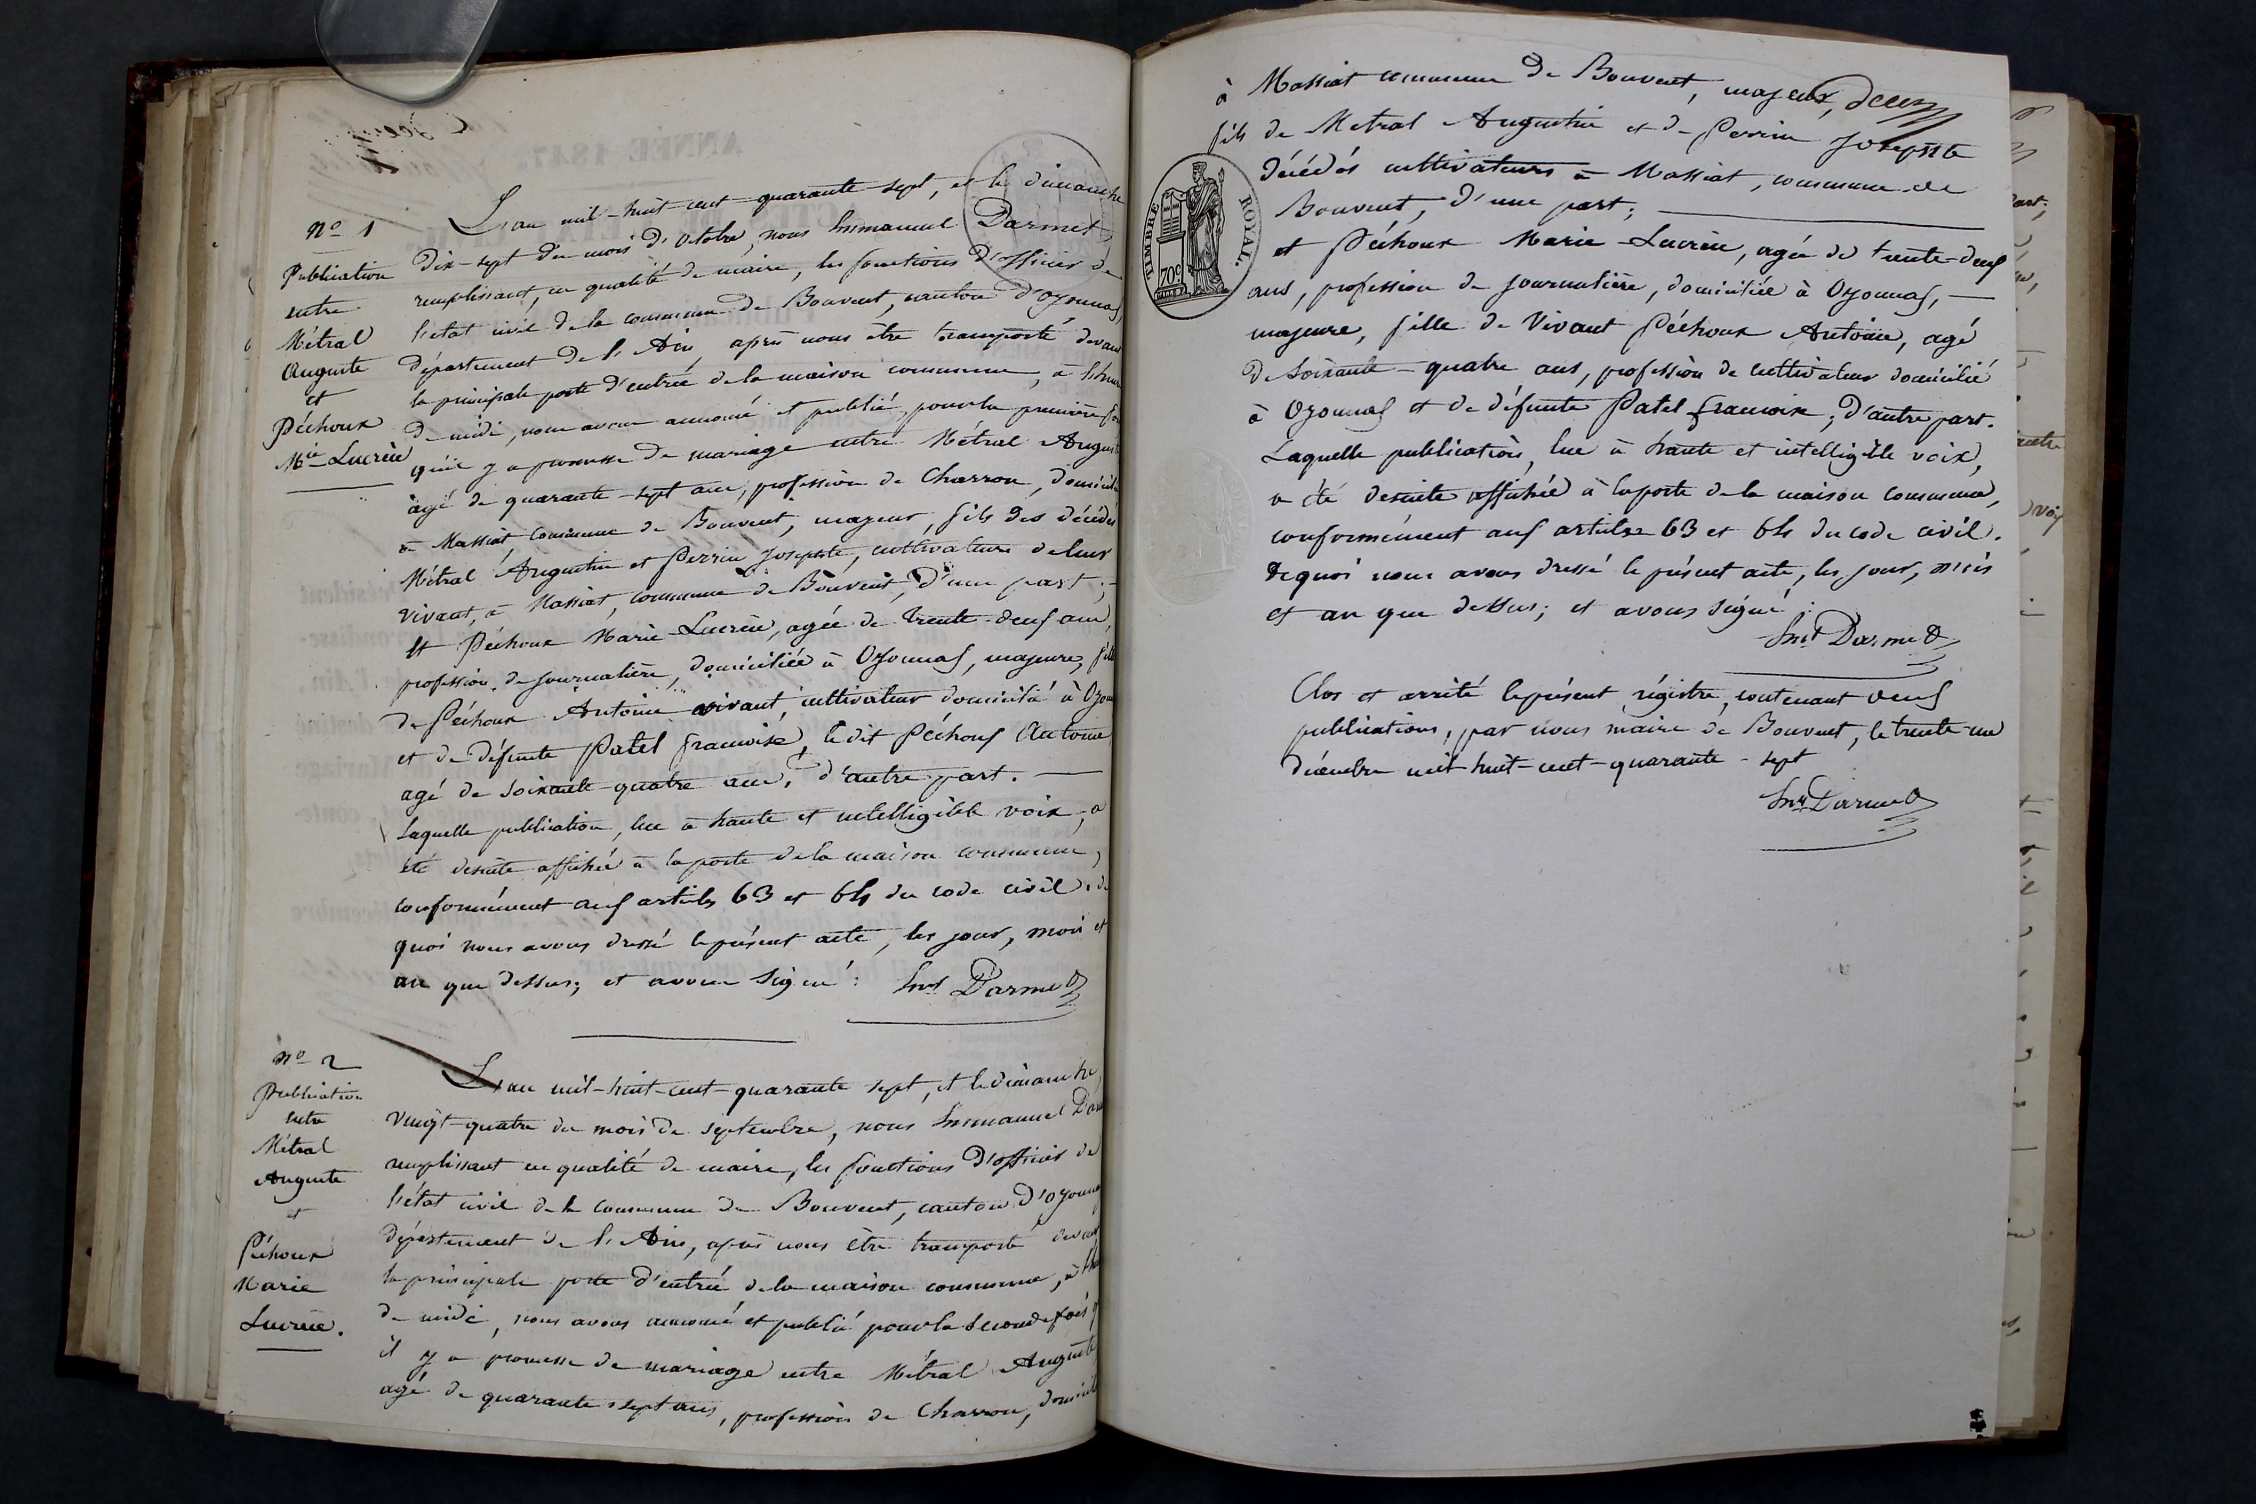 nº 1
Publication
entre
Métral
Auguste
et
Péchoux
Mie Lucrèce
L'an mil-huit-cent-quarante-sept, et le dimanche
dix-sept du mois d'octobre, nous Emmanuel Darmet
remplissant, en qualité de maire, les fonctions d'officier de
l'état civil de la commune de Bouvent, canton d'Oyonnax,
département de l'Ain, après nous être transporté devant
la principale porte d'entrée de la maison commune, à l'heure
de midi, nous avons annoncé et publié, pour la première fois
qu'il y a promesse de mariage entre Métral Auguste
agé de quarante-sept ans, profession de Charron, domicilié
à Massiat commune de Bouvent, majeur, fils des décédés
Métral Augustin et Perrin Josephte, cultivateurs de leur
vivant, à Massiat, commune de Bouvent, d'une part;
Et Péchoux Marie-Lucrèce, agée de trente-deux ans,
profession de journalière, domiciliée à Oyonnax, majeure, fille
de Péchoux Antoine vivant, cultivateur domicilié à Oyon
et de défunte Patel françoise, le dit Péchoux Antoine
agé de soixante-quatre ans, d'autre part.
Laquelle publication, lue à haute et intelligible voix, a
été desuite affichée à la porte de la maison commune,
conformément aux articles 63 et 64 du code civil. de
quoi nous avons dressé le présent acte, les jour, mois et
an que dessus; et avons signé: Emel Darmet
nº 2
Publication
entre
Métral
Auguste
et
Péhoux
Marie
Lucrèce.
L'an mil-huit-cent-quarante sept, et le dimanche
vingt-quatre du mois de septembre, nous Emmanuel Dar
remplissant en qualité de maire, les fonctions d'officier de
l'état civil de la commune de Bouvent, canton d'Oyonna
département de l'Ain, après nous être transporté devant
la principale porte d'entrée de la maison commune, à l'heu
de midi, nous avons annoncé et publié pour la seconde fois q
il y a promesse de mariage entre Métral Auguste
agé de quarante sept ans, profession de Charron, domicilié
à Massiat commune de Bouvent, majeur,
fils de Metral Augustin et de Perrin Josephte
décédés cultivateurs à Massiat, commune de
Bouvent, d'une part;
et Péchoux Marie-Lucrèce, agée de trente-deux
ans, profession de journalière, domiciliée à Oyonnax,
majeure, fille de Vivant Péchoux Antoine, agé
de soixante-quatre ans, profession de cultivateur domicilié
à Oyonnax et de défunte Patel françoise; d'autre part.
Laquelle publication, lue à haute et intelligible voix,
a été desuite affichée à la porte de la maison commune,
conformément aux articles 63 et 64 du code civil.
de quoi nous avons dressé le présent acte, les jour, mois
et an que dessus; et avons signé:
Emel Darmet
Clos et arrêté le présent régistre, contenant deux
publications, par nous maire de Bouvent, le trente-un
décembre mil-huit-cent-quarante-sept
Emel Darmet
TIMBRE ROYAL.
70c